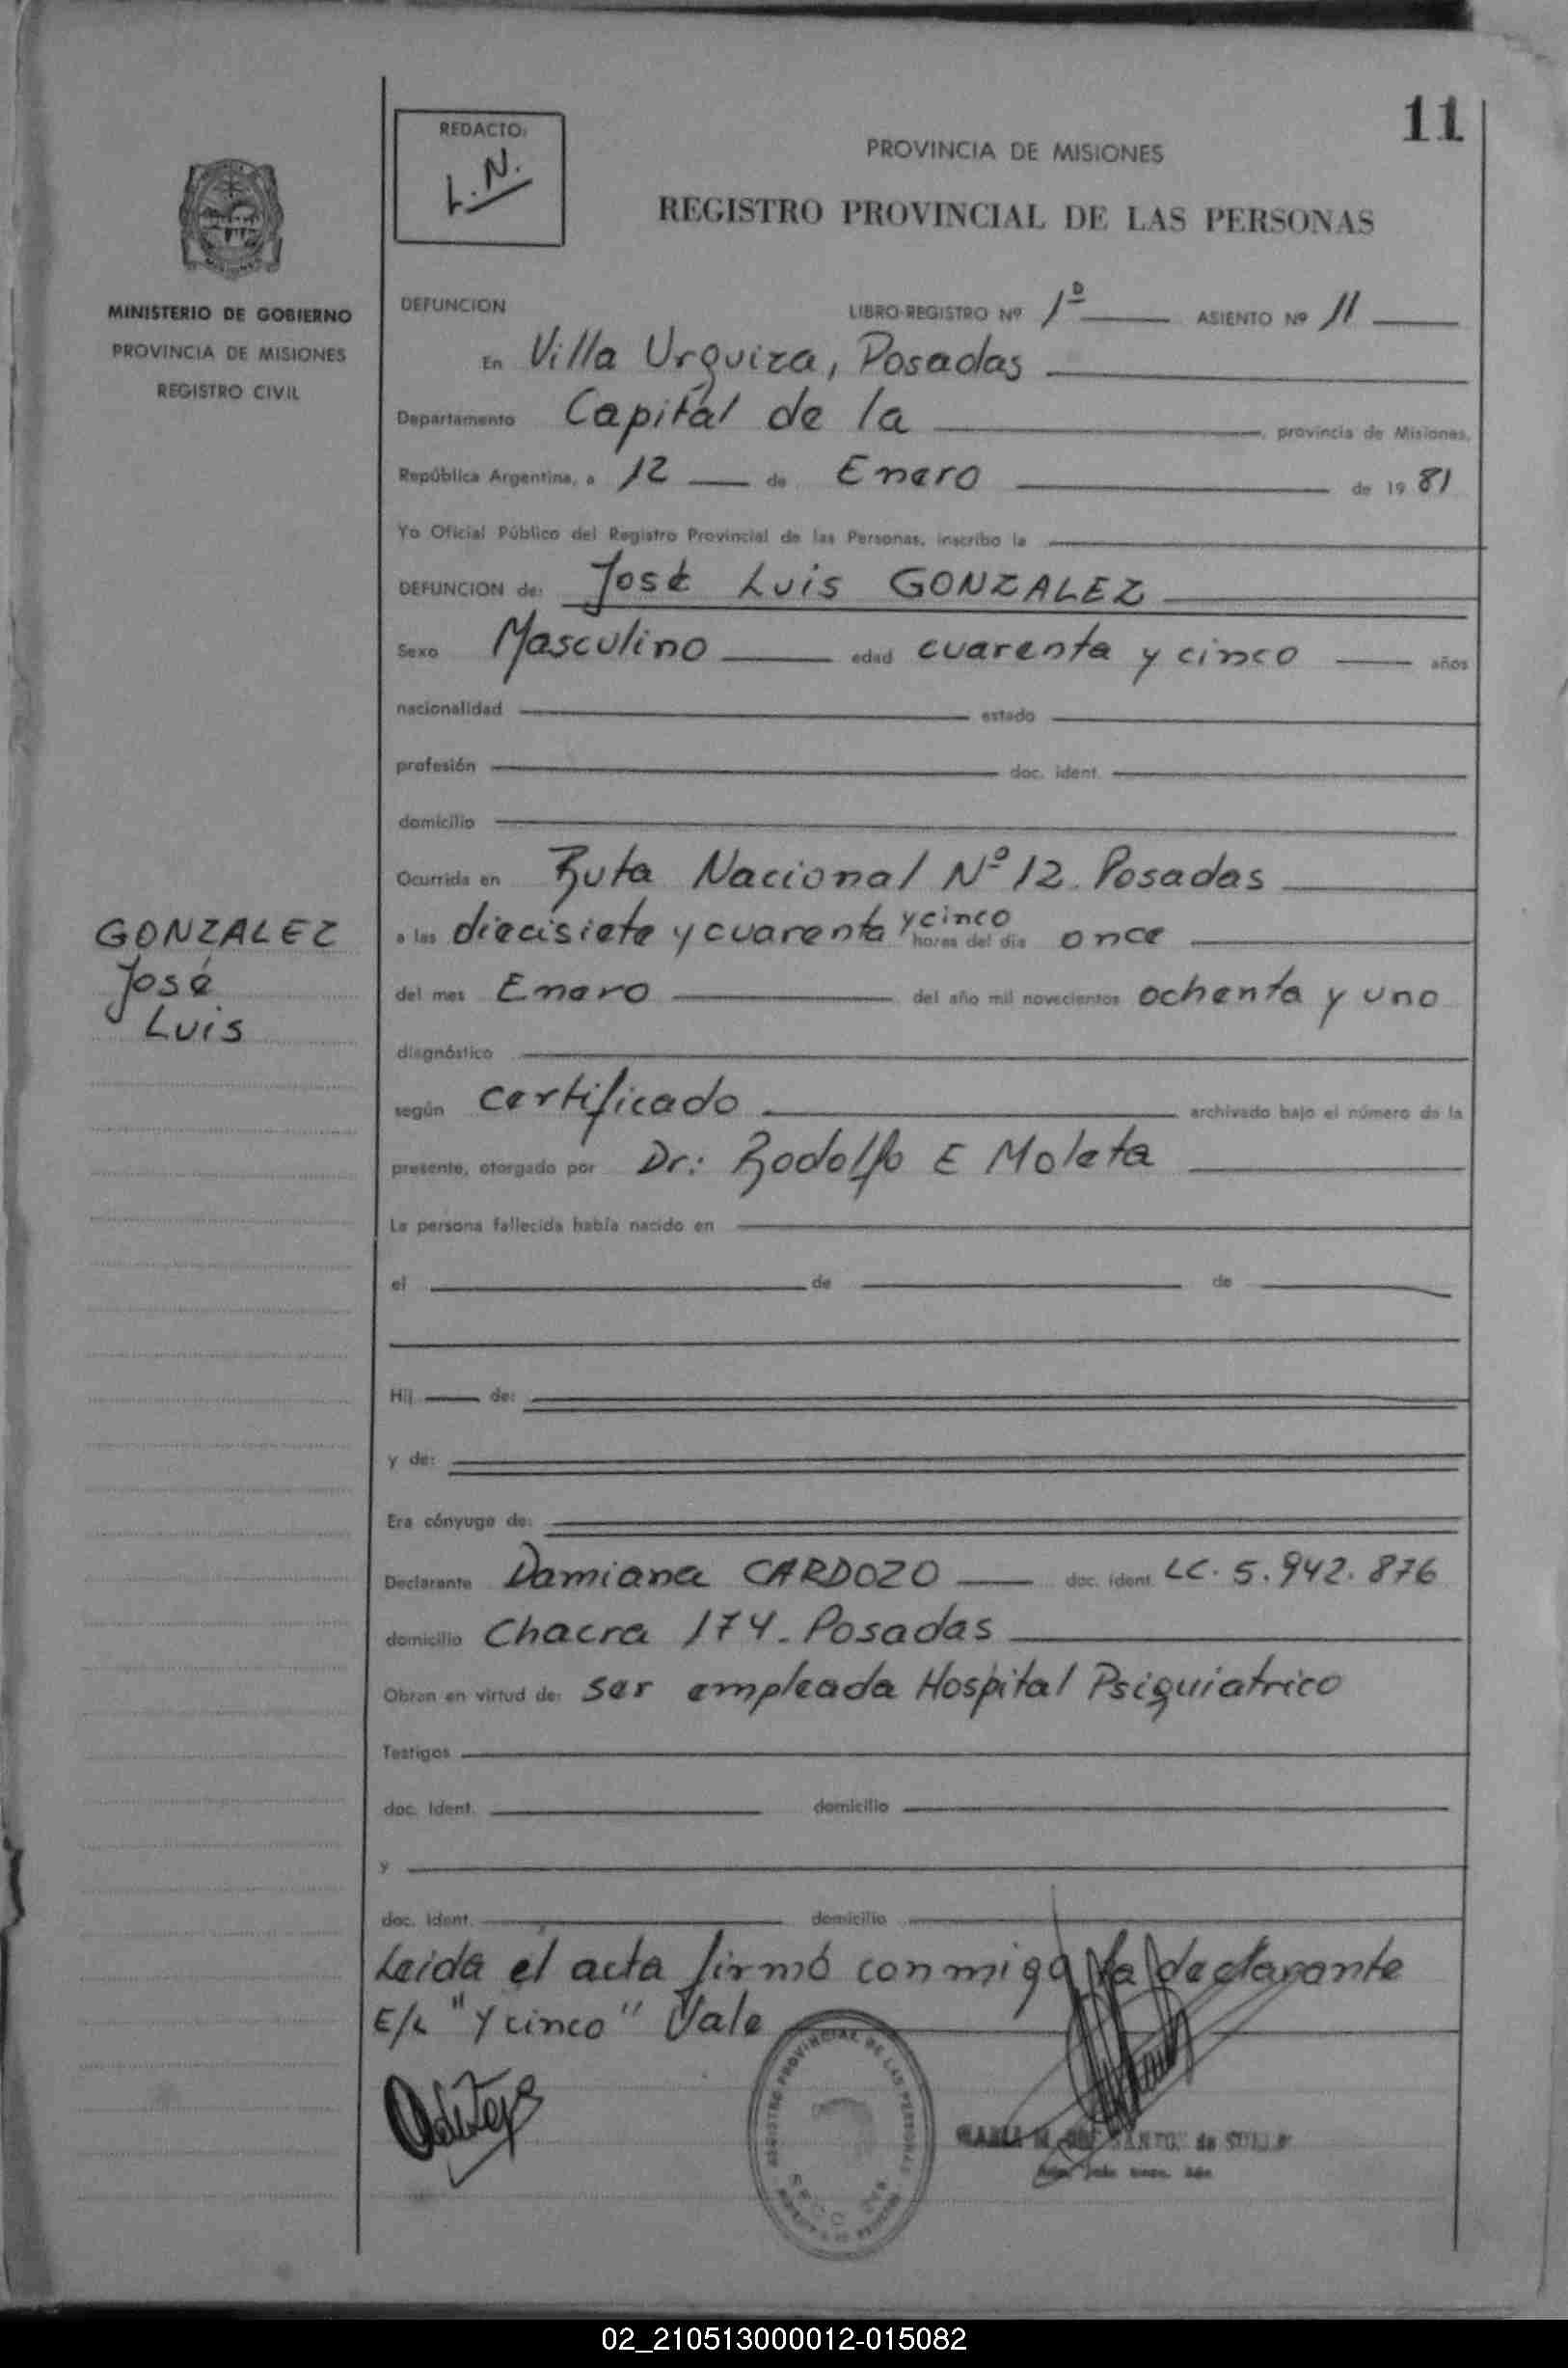 11
REDACTO:
L.N.
PROVINCIA DE MISIONES
REGISTRO PROVINCIAL DE LAS PERSONAS
MINISTERIO DE GOBIERNO
PROVINCIA DE MISIONES
REGISTRO CIVIL
DEFUNCION LIBRO-REGISTRO Nº 1º ASIENTO Nº 11
En Villa Urquiza, Posadas
Departamento Capital de la , provincia de Misiones,
República Argentina, a 12 de Enero de 1981
Yo Oficial Público del Registro Provincial de las Personas, inscribo la
DEFUNCION de: José Luis GONZALEZ
Sexo Masculino edad cuarenta y cinco años
nacionalidad estado
profesión doc. ident.
domicilio
Ocurrida en Ruta Nacional Nº 12. Posadas
GONZALEZ
José
Luis
a las diecisiete y cuarenta y cinco horas del día once
del mes Enero del año mil novecientos ochenta y uno
diagnóstico
según certificado archivado bajo el número de la
presente, otorgado por Dr: Rodolfo E Moleta
La persona fallecida había nacido en
el de de
Hij de:
y de:
Era cónyuge de:
Declarante Damiana CARDOZO doc. ident. LC. 5.942.876
domicilio Chacra 174. Posadas
Obran en virtud de: ser empleada Hospital Psiquiatrico
Testigos
doc. Ident. domicilio
y
doc. Ident. domicilio
Leida el acta firmó conmigo la declarante
E/L "y cinco" Vale
REGISTRO PROVINCIAL DE LAS PERSONAS
02_210513000012-015082